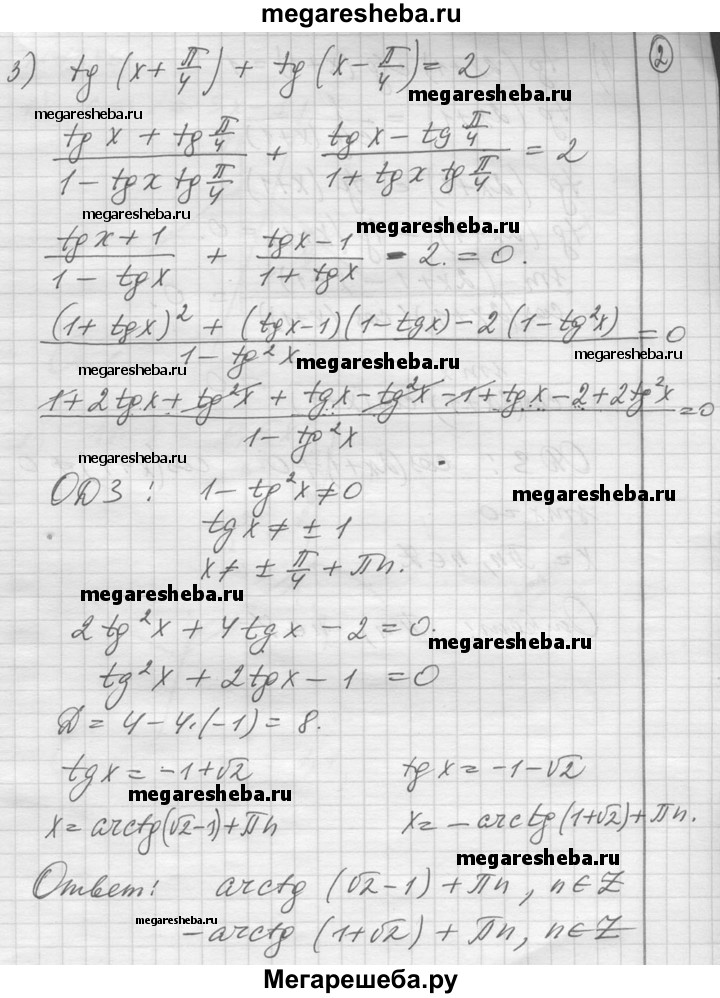 megaresheba.ru
3) tg (x + π/4) + tg (x - π/4) = 2
②
megaresheba.ru
megaresheba.ru
(tg x + tg π/4)/(1 - tg x tg π/4) + (tg x - tg π/4)/(1 + tg x tg π/4) = 2
megaresheba.ru
megaresheba.ru
(tg x + 1)/(1 - tg x) + (tg x - 1)/(1 + tg x) - 2. = 0.
((1 + tg x)² + (tg x - 1)(1 - tg x) - 2(1 - tg²x))/(1 - tg²x) = 0
megaresheba.ru
megaresheba.ru
megaresheba.ru
(1 + 2tg x + tg²x + tg x - tg²x - 1 + tg x - 2 + 2tg²x)/(1 - tg²x) = 0
ОДЗ: 1 - tg²x ≠ 0
megaresheba.ru
tg x ≠ ± 1
x ≠ ± π/4 + πn.
megaresheba.ru
2tg²x + 4tg x - 2 = 0.
megaresheba.ru
tg²x + 2tg x - 1 = 0
Д = 4 - 4·(-1) = 8.
megaresheba.ru
tg x = -1 + √2 tg x = -1 - √2
megaresheba.ru
x = arctg(√2 - 1) + πn x = - arctg(1 + √2) + πn.
megaresheba.ru
Ответ: arctg (√2 - 1) + πn, n ∈ Z
megaresheba.ru
- arctg (1 + √2) + πn, n ∈ Z
Мегарешеба.ру